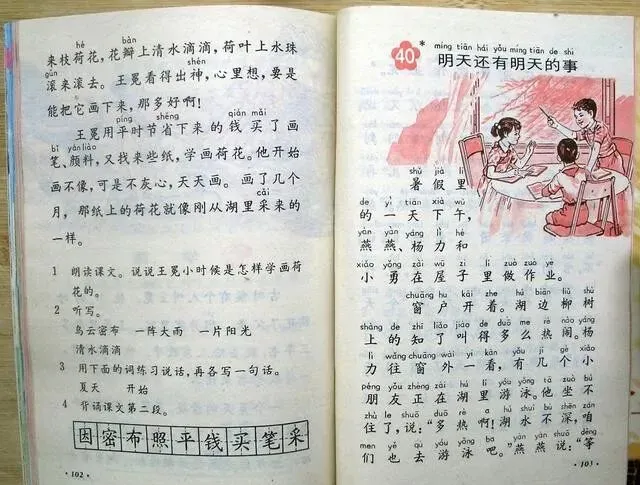 hé bàn
来枝荷花,花瓣上清水滴滴,荷叶上水珠
gǔn shén
滚来滚去。王冕看得出神,心里想,要是
能把它画下来,那多好啊!
píng shěng qián mǎi
王冕用平时节省下来的钱买了画
bǐ yán liào
笔、颜料,又找来些纸,学画荷花。他开始
画不像,可是不灰心,天天画。画了几个
cǎi
月,那纸上的荷花就像刚从湖里采来的
一样。
1 朗读课文。说说王冕小时候是怎样学画荷
花的。
2 听写。
乌云密布 一阵大雨 一片阳光
清水滴滴
3 用下面的词练习说话,再各写一句话。
夏天 开始
4 背诵课文第二段。
因密布照平钱买笔采
·102·
míng tiān hái yǒu míng tiān de shì
40* 明天还有明天的事
shǔ jià lǐ
暑假里
de yì tiān xià wǔ
的一天下午,
yàn yàn yáng lì hé
燕燕、杨力和
xiǎo yǒng zài wū zi lǐ zuò zuò yè
小勇在屋子里做作业。
chuāng hu kāi zhe hú biān liǔ shù
窗户开着。湖边柳树
shàng de zhī liǎo jiào de duō me rè nào yáng
上的知了叫得多么热闹。杨
lì wǎng chuāng wài yí kàn yǒu jǐ gè xiǎo
力往窗外一看,有几个小
péng yǒu zhèng zài hú lǐ yóu yǒng tā zuò bú
朋友正在湖里游泳。他坐不
zhù le shuō duō rè a hú shuǐ bù shēn zán
住了,说:“多热啊!湖水不深,咱
men yě qù yóu yǒng ba yàn yàn shuō děng
们也去游泳吧。”燕燕说:“等
·103·